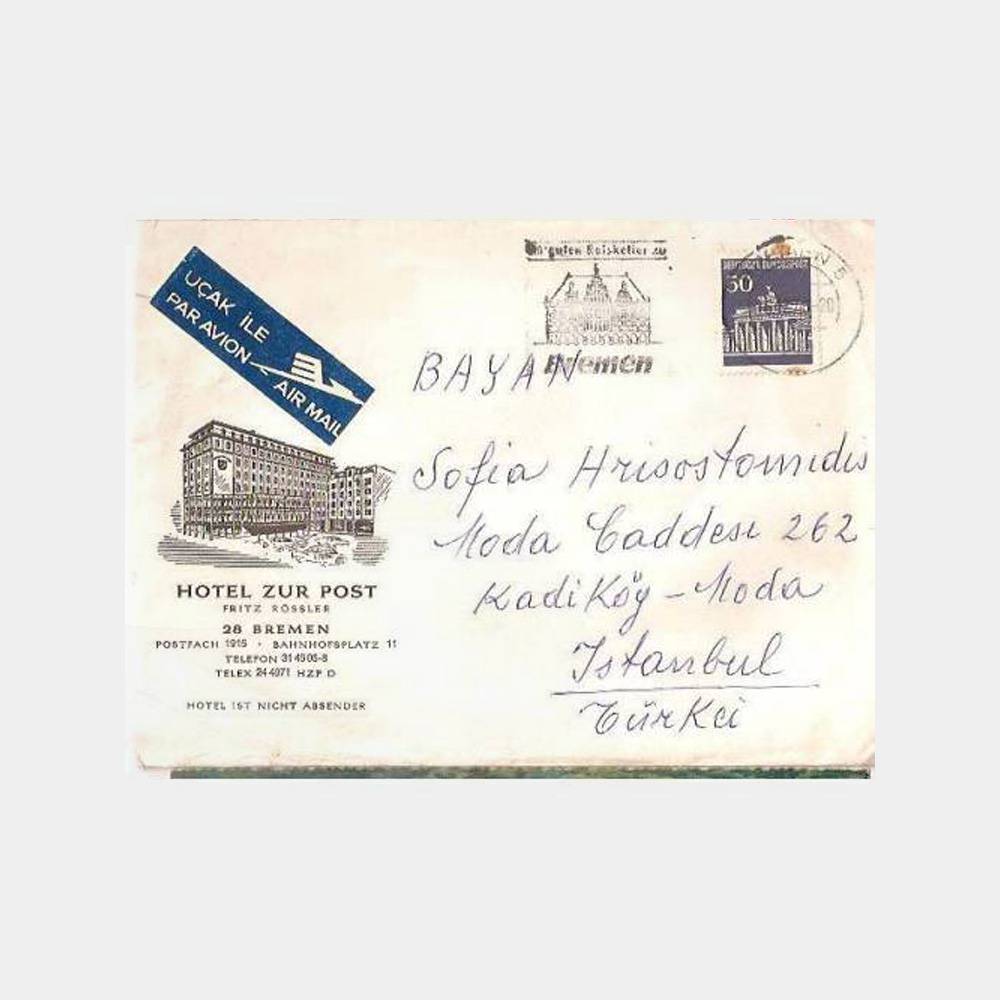 UÇAK İLE
PAR AVION
AIR MAIL
guten Ratskeller zu
Bremen
DEUTSCHE BUNDESPOST
50
BAYAN
Sofia Hrisostomidis
Moda Caddesi 262
Kadi Köy - Moda
Istanbul
Türkei
HOTEL ZUR POST
FRITZ RÖSSLER
28 BREMEN
POSTFACH 1915 · BAHNHOFSPLATZ 11
TELEFON
TELEX 24 4971 HZP D
HOTEL IST NICHT ABSENDER